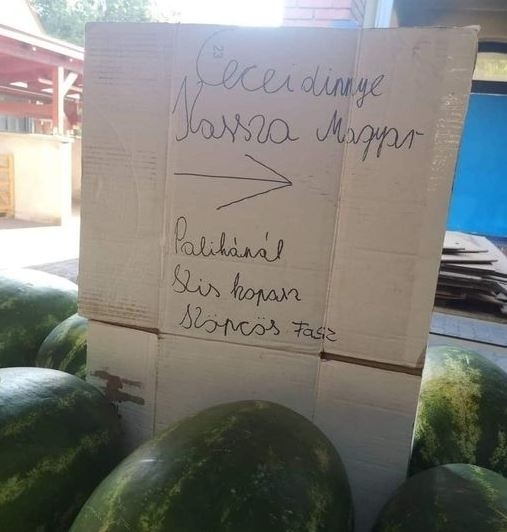 23
Cecei dinnye
Kassza Magyar
Palikánál
Kis kopasz
Köpcös Fasz